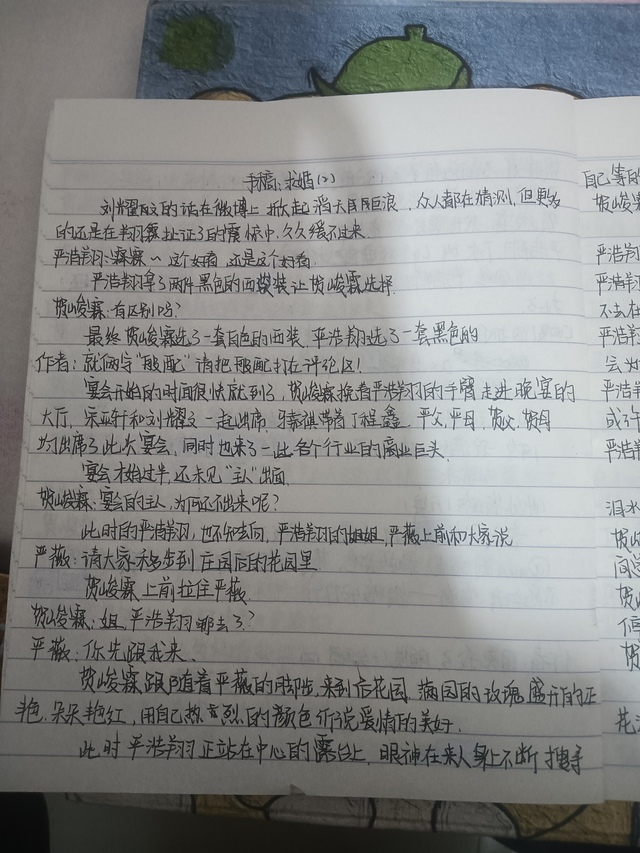 手稿:求婚(2)
刘耀文的话在微博上掀起滔天巨浪,众人都在猜测,但更多
的还是在翔霖扯证了的震惊中,久久缓不过来.
严浩翔:霖霖~这个好看,还是这个好看.
严浩翔拿了两件黑色的西装让贺峻霖选择.
贺峻霖:有区别吗?
最终贺峻霖选了一套白色的西装,严浩翔选了一套黑色的
作者:就俩字"般配"请把般配打在评论区!
宴会开始的时间很快就到了,贺峻霖挽着严浩翔的手臂走进晚宴的
大厅,宋亚轩和刘耀文一起出席,马嘉祺带着丁程鑫,严父,严母,贺父,贺母
均出席了此次宴会,同时也来了一些各个行业的商业巨头.
宴会才始过半,还未见"主人"出面
贺峻霖:宴会的主人,为何还不出来呢?
此时的严浩翔,也不知去向,严浩翔的姐姐,严薇上前和大家说
严薇:请大家移步到庄园后的花园里.
贺峻霖上前拉住严薇.
贺峻霖:姐,严浩翔哪去了?
严薇:你先跟我来.
贺峻霖跟随着严薇的脚步,来到后花园.满园的玫瑰盛开的正
艳.朵朵艳红,用自己热烈的颜色诉说爱情的美好.
此时严浩翔正站在中心的露台上,眼神在来人身上不断搜寻
自己等的
贺峻霖
严浩翔
严浩翔
不去在
会为
严浩翔
或许
严浩翔
泪水
贺峻
问道
贺峻
何
贺
花